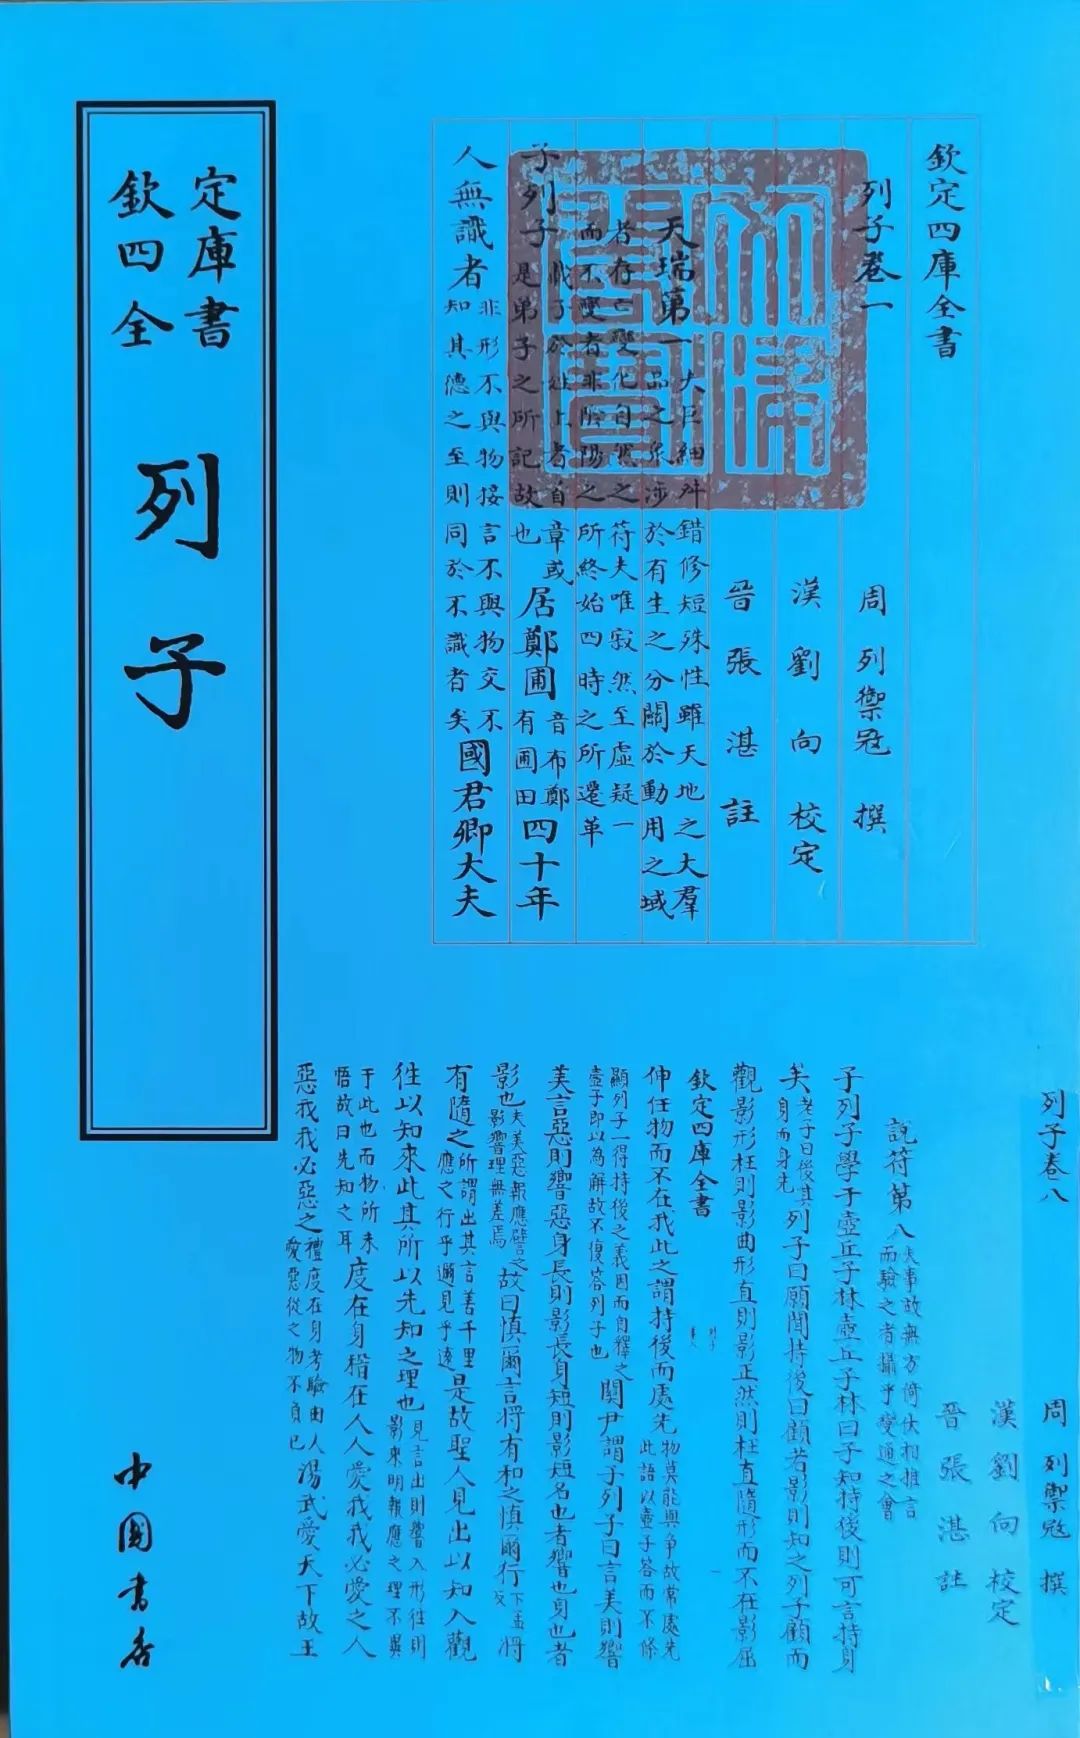 欽定
四庫
全書
列子
中國書店
欽定四庫全書
列子卷一
周列禦寇撰
漢劉向校定
晉張湛註
天瑞第一大巨細舛錯修短殊性雖天地之大羣品之衆涉於有生之分關於動用之域
者存亡變化自然之符夫唯寂然至虛疑一而不變者非陰陽之所終始四時之所遷革
子列子載子於姓上者首章或是弟子之所記故也居鄭圃音布鄭有圃田四十年
人無識者非形不與物接言不與物交不知其德之至則同於不識者矣國君卿大夫
列子卷八
周列禦寇撰
漢劉向校定
晉張湛註
說符第八夫事故無方倚伏相推言而驗之者攝乎變通之會
子列子學于壺丘子林壺丘子林曰子知持後則可言持身
矣老子曰後其身而身先列子曰願聞持後曰顧若影則知之列子顧而
觀影形枉則影曲形直則影正然則枉直隨形而不在影屈
欽定四庫全書
伸任物而不在我此之謂持後而處先物莫能與爭故常處先此語以壺子答而不條
顯列子一得持後之義因而自釋之壺子即以為解故不復答列子也關尹謂子列子曰言美則響
美言惡則響惡身長則影長身短則影短名也者響也身也者
影也夫美惡報應譬之影響理無差焉故曰慎爾言將有和之慎爾行將
有隨之所謂出其言善千里應之行乎邇見乎遠是故聖人見出以知入觀
往以知來此其所以先知之理也見言出則響入形往則影來明報應之理不異
于此也而物所未悟故曰先知之耳度在身稽在人人愛我我必愛之人
惡我我必惡之禮度在身考驗由人愛惡從之物不負已湯武愛天下故王